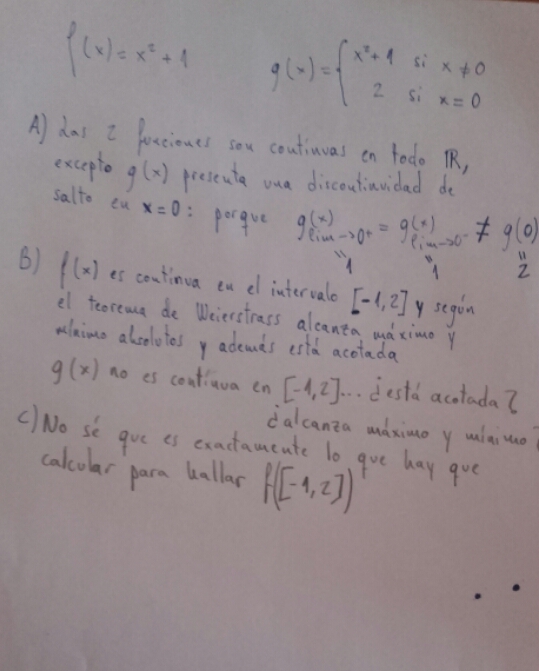 f(x) = x² + 1 g(x) = { x² + 1 si x ≠ 0
2 si x = 0
A) Las 2 funciones son continuas en todo ℝ,
excepto g(x) presenta una discontinuidad de
salto en x = 0 : porque g(x) lim→0⁺ = g(x) lim→0⁻ ≠ g(0)
" 1 " 1 " 2
B) f(x) es contínua en el intervalo [-1,2] y según
el teorema de Weierstrass alcanza máximo y
mínimo absolutos y además está acotada
g(x) no es contínua en [-1,2]... ¿está acotada?
¿alcanza máximo y mínimo?
C) No sé que es exactamente lo que hay que
calcular para hallar f([-1,2])